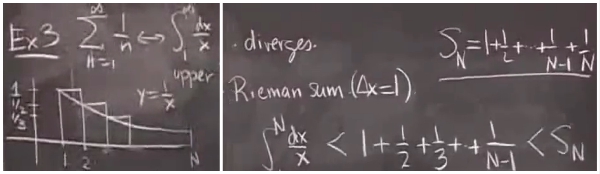 Ex3 ∞∑n=1 1/n ↔ ∫1^∞ dx/x
upper
y=1/x
1
1/2
1/3
1 2 N
· diverges.
S_N = 1+1/2+··+1/(N-1)+1/N
Rieman sum (Δx=1)
∫^N dx/x < 1+1/2+1/3+··+1/(N-1) < S_N